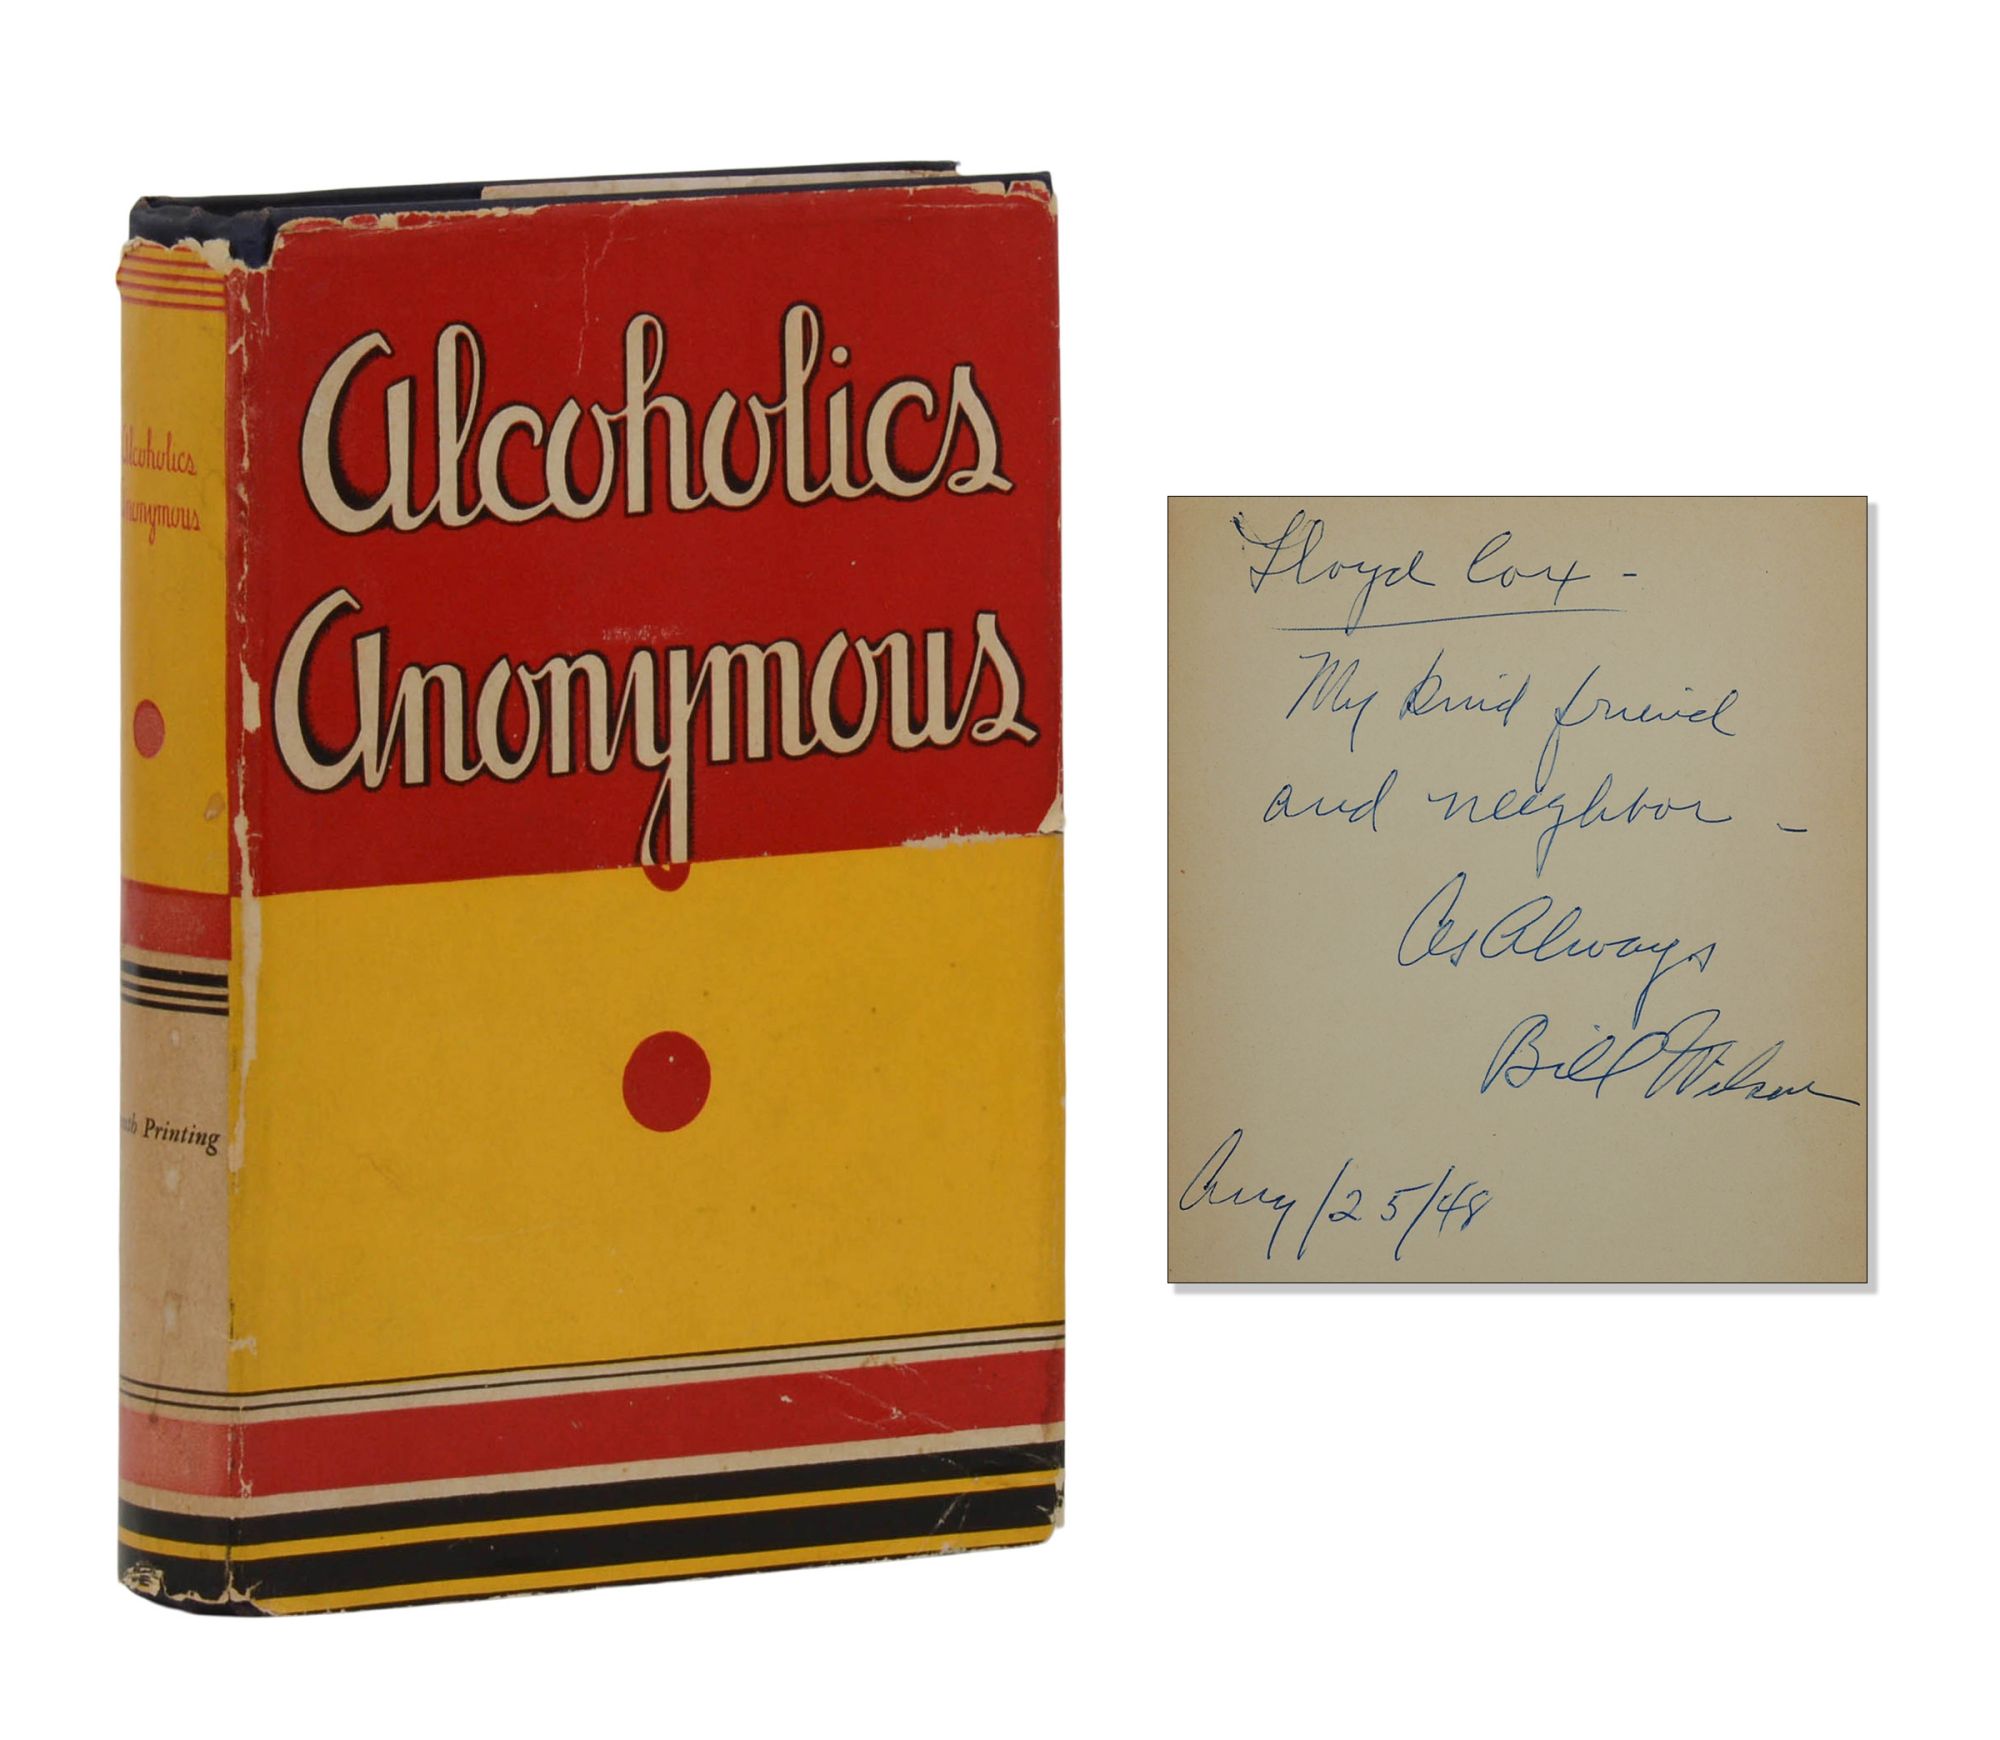 Alcoholics
Anonymous
Alcoholics
Anonymous
Printing
Lloyd Cox -
My kind friend
and neighbor -
As Always
Bill Wilson
Aug/25/48